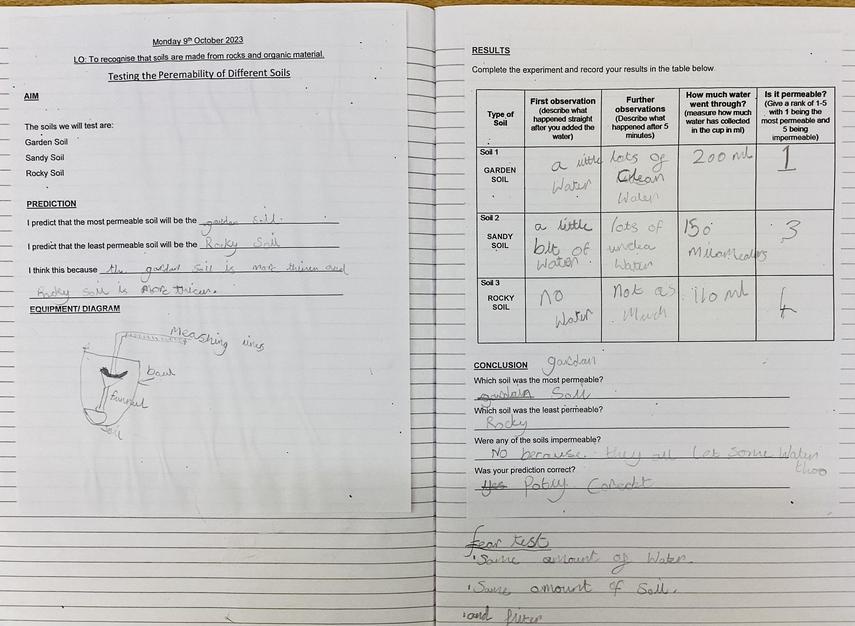 Monday 9th October 2023
LO: To recognise that soils are made from rocks and organic material.
Testing the Peremability of Different Soils
AIM
The soils we will test are:
Garden Soil
Sandy Soil
Rocky Soil
PREDICTION
I predict that the most permeable soil will be the garden soil.
I predict that the least permeable soil will be the Rocky Soil
I think this because the gardan soil is more and
Rocky soil is more
EQUIPMENT/ DIAGRAM
Meashing
baul
funnul
Soil
RESULTS
Complete the experiment and record your results in the table below.
Type of Soil
First observation (describe what happened straight after you added the water)
Further observations (Describe what happened after 5 minutes)
How much water went through? (measure how much water has collected in the cup in ml)
Is it permeable? (Give a rank of 1-5 with 1 being the most permeable and 5 being impermeable)
Soil 1
GARDEN SOIL
a little Water
lots of Clean Water
200 ml
1
Soil 2
SANDY SOIL
a little bit of Water
lots of Water
150
3
Soil 3
ROCKY SOIL
no Water
Not as Much
110 ml
4
CONCLUSION
gardan
Which soil was the most permeable?
Soil
Which soil was the least permeable?
Rocky
Were any of the soils impermeable?
No because they all let some Water
thoo
Was your prediction correct?
Yes Potly Corect
fear test
• Same amount of Water.
• Same amount of Soil.
• and